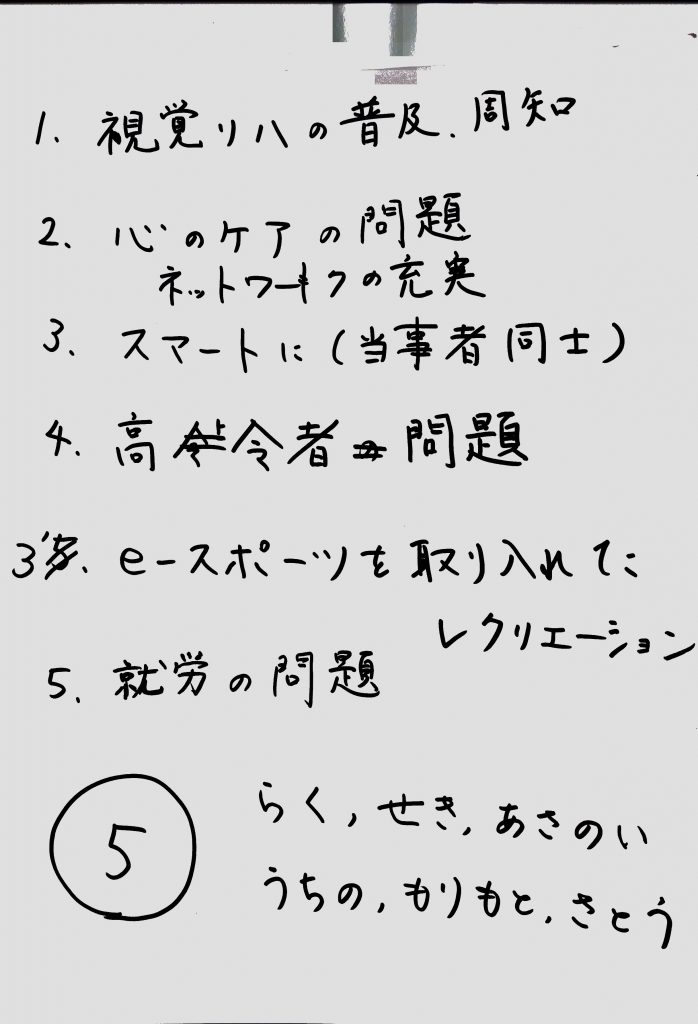 1. 視覚リハの普及.周知
2. 心のケアの問題
ネットワークの充実
3. スマートに(当事者同士)
4. 高令者の問題
3'. e-スポーツを取り入れた
レクリエーション
5. 就労の問題
5
らく,せき,あさのい
うちの,もりもと,さとう